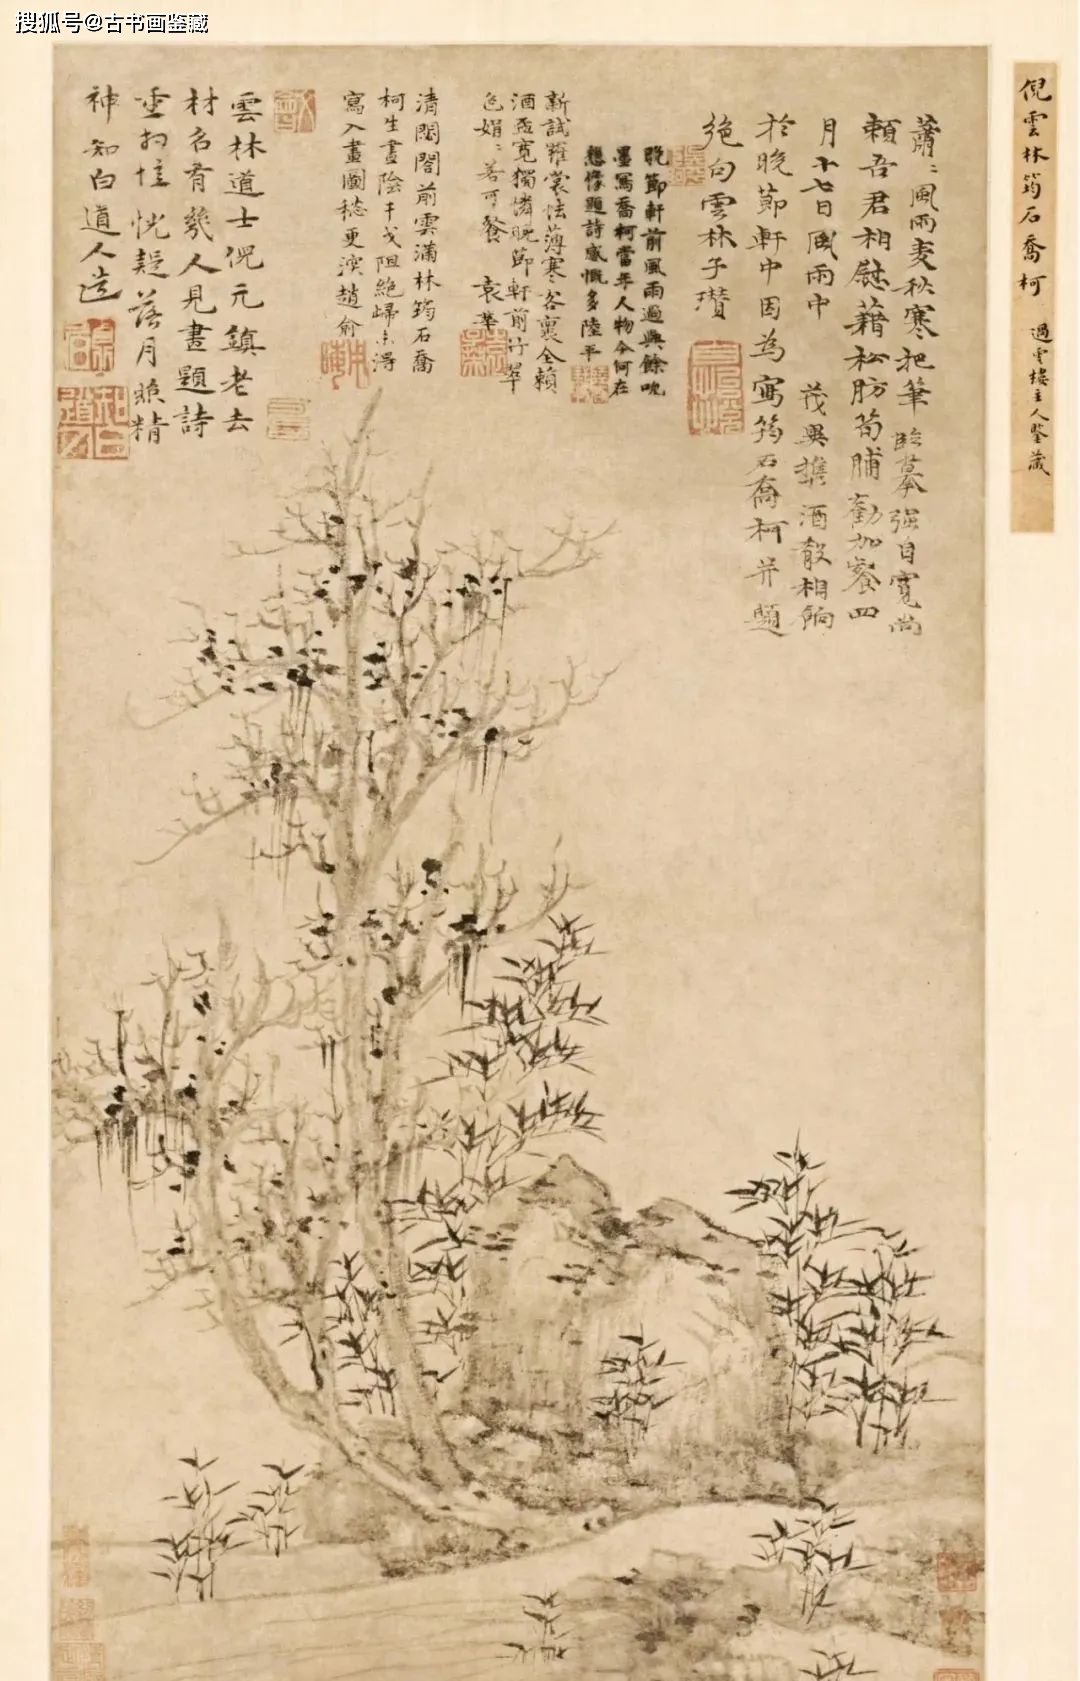 搜狐号@古书画鉴藏
倪雲林筠石喬柯 過雲樓主人鑒藏
蕭〻風雨麦秋寒把筆臨摹強自寬尚
賴吾君相慰藉松肪筍脯勸加餐四
月十七日風雨中 茂異攜酒殽相餉
於晚節軒中因為寫筠石喬柯并題
絶句雲林子瓚
晚節軒前風雨過興餘吮
墨寫喬柯當年人物今何在
想像題詩感慨多陸平
新試羅裳怯薄寒客裏全賴
酒盃寬獨憐晚節軒前竹翠
色娟〻若可餐 袁華
清閟閣前雲滿林筠石喬
柯生晝陰干戈阻絶歸未得
寫入畫圖愁更深趙俞
雲林道士倪元鎮老去
材名有幾人見畫題詩
重惆悵恍疑落月照精
神 知白道人造